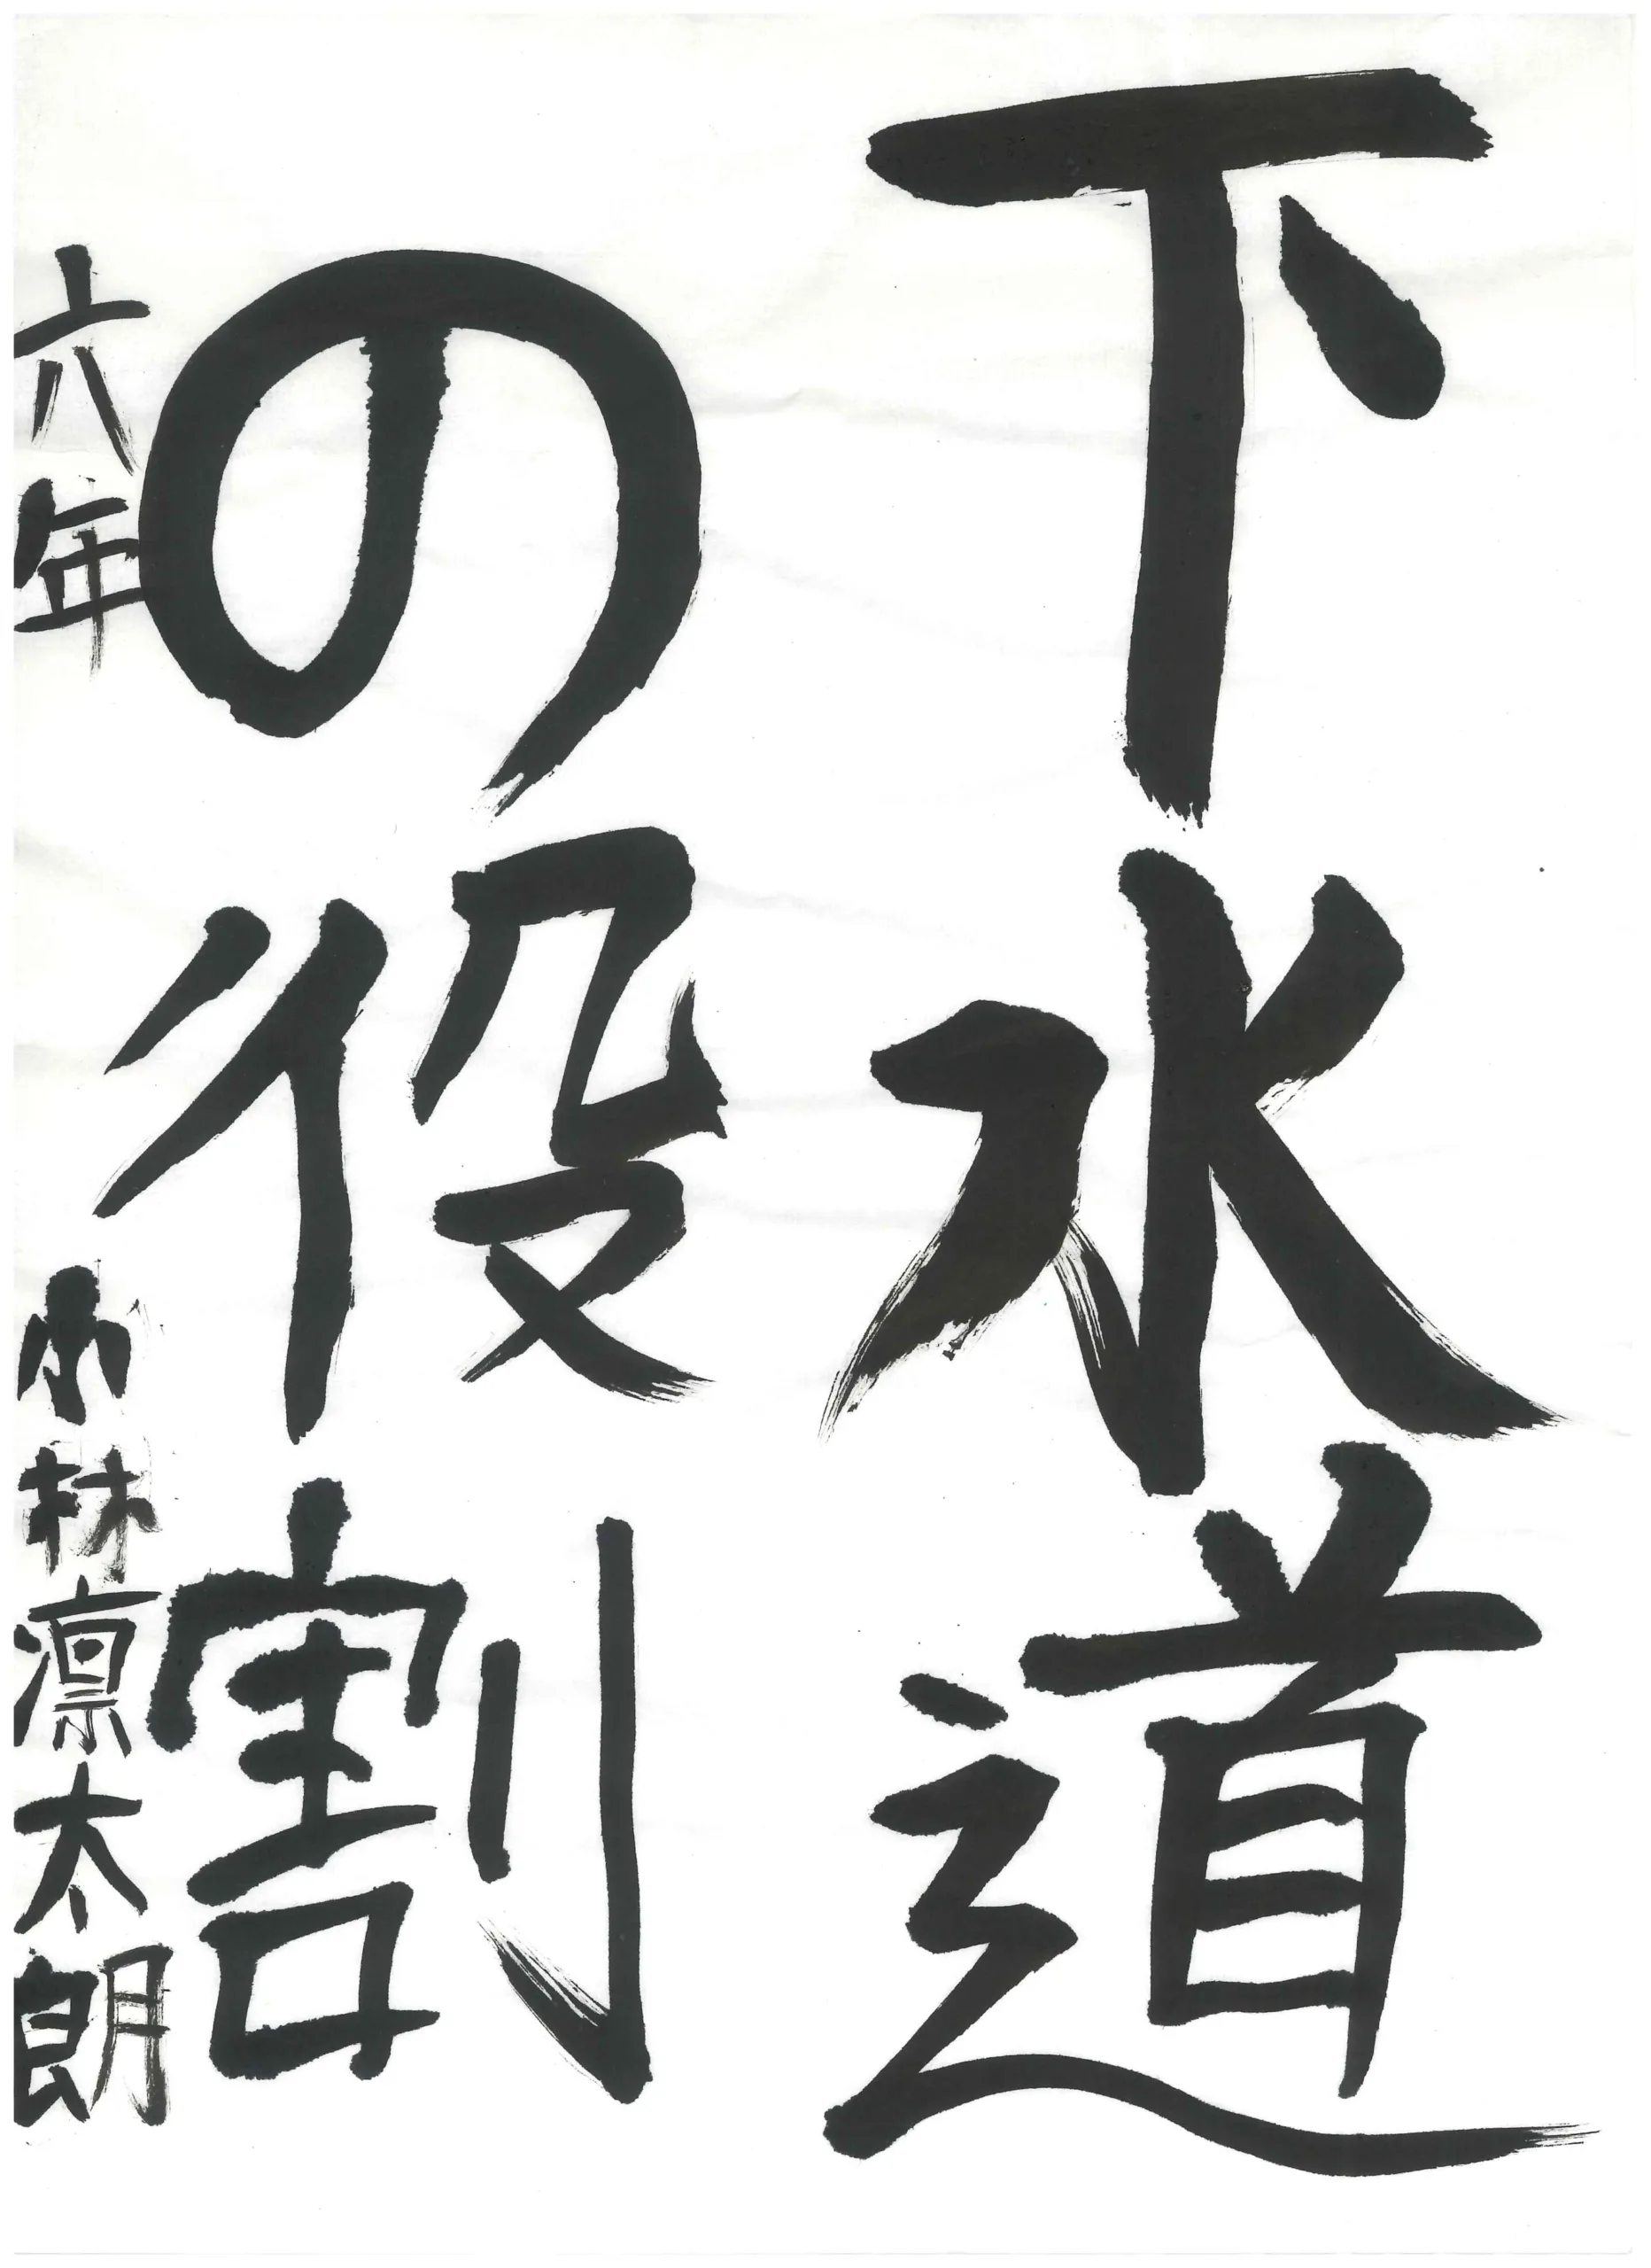 下水道
の役割
六年 小林凛太朗